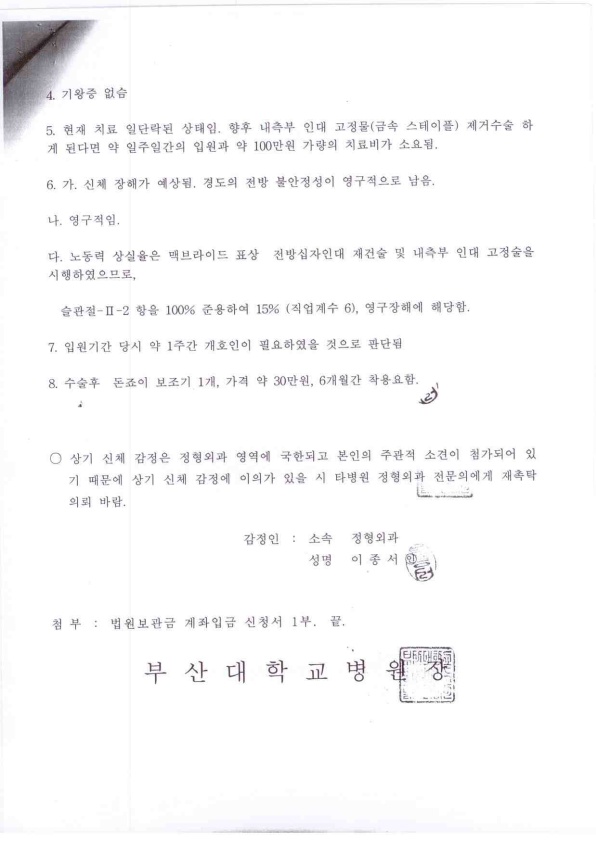 4. 기왕증 없슴
5. 현재 치료 일단락된 상태임. 향후 내측부 인대 고정물(금속 스테이플) 제거수술 하
게 된다면 약 일주일간의 입원과 약 100만원 가량의 치료비가 소요됨.
6. 가. 신체 장해가 예상됨. 경도의 전방 불안정성이 영구적으로 남음.
나. 영구적임.
다. 노동력 상실율은 맥브라이드 표상 전방십자인대 재건술 및 내측부 인대 고정술을
시행하였으므로,
슬관절-Ⅱ-2 항을 100% 준용하여 15% (직업계수 6), 영구장해에 해당함.
7. 입원기간 당시 약 1주간 개호인이 필요하였을 것으로 판단됨
8. 수술후 돈죠이 보조기 1개, 가격 약 30만원, 6개월간 착용요함.
○ 상기 신체 감정은 정형외과 영역에 국한되고 본인의 주관적 소견이 첨가되어 있
기 때문에 상기 신체 감정에 이의가 있을 시 타병원 정형외과 전문의에게 재촉탁
의뢰 바람.
감정인 : 소속 정형외과
성명 이종서 인
첨 부 : 법원보관금 계좌입금 신청서 1부. 끝.
부산대학교병원장